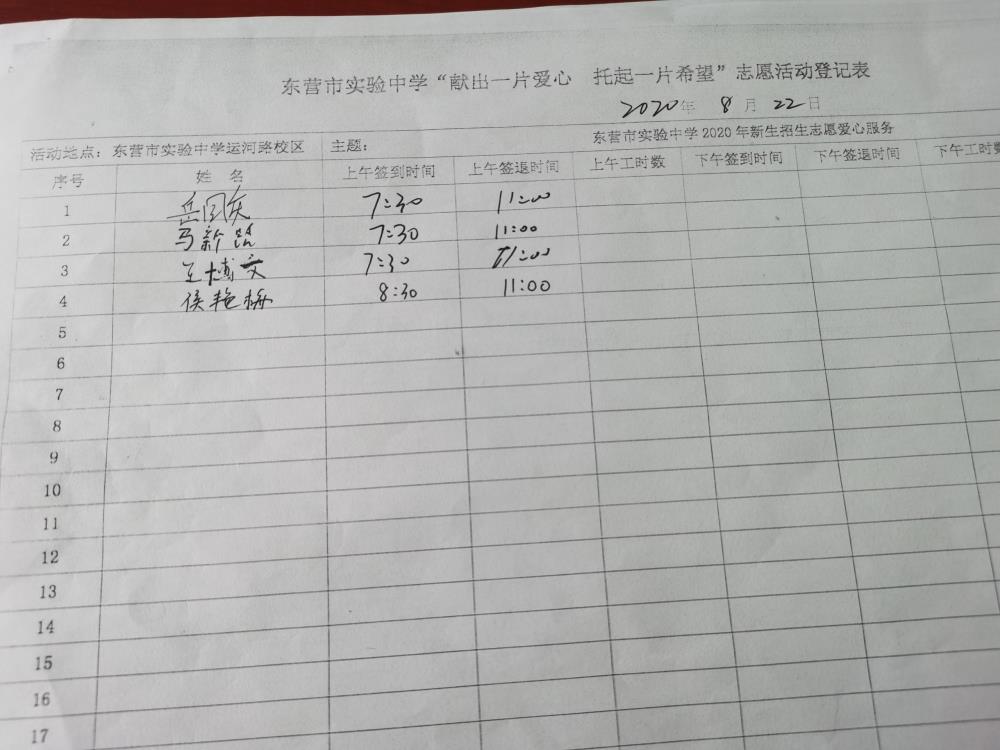 东营市实验中学“献出一片爱心 托起一片希望”志愿活动登记表
2020年 8 月 22 日
活动地点：东营市实验中学运河路校区 主题： 东营市实验中学2020年新生招生志愿爱心服务
序号 姓 名 上午签到时间 上午签退时间 上午工时数 下午签到时间 下午签退时间 下午工时数
1 7:30 11:00
2 马新 7:30 11:00
3 王博文 7:30 11:00
4 侯艳梅 8:30 11:00
5
6
7
8
9
10
11
12
13
14
15
16
17